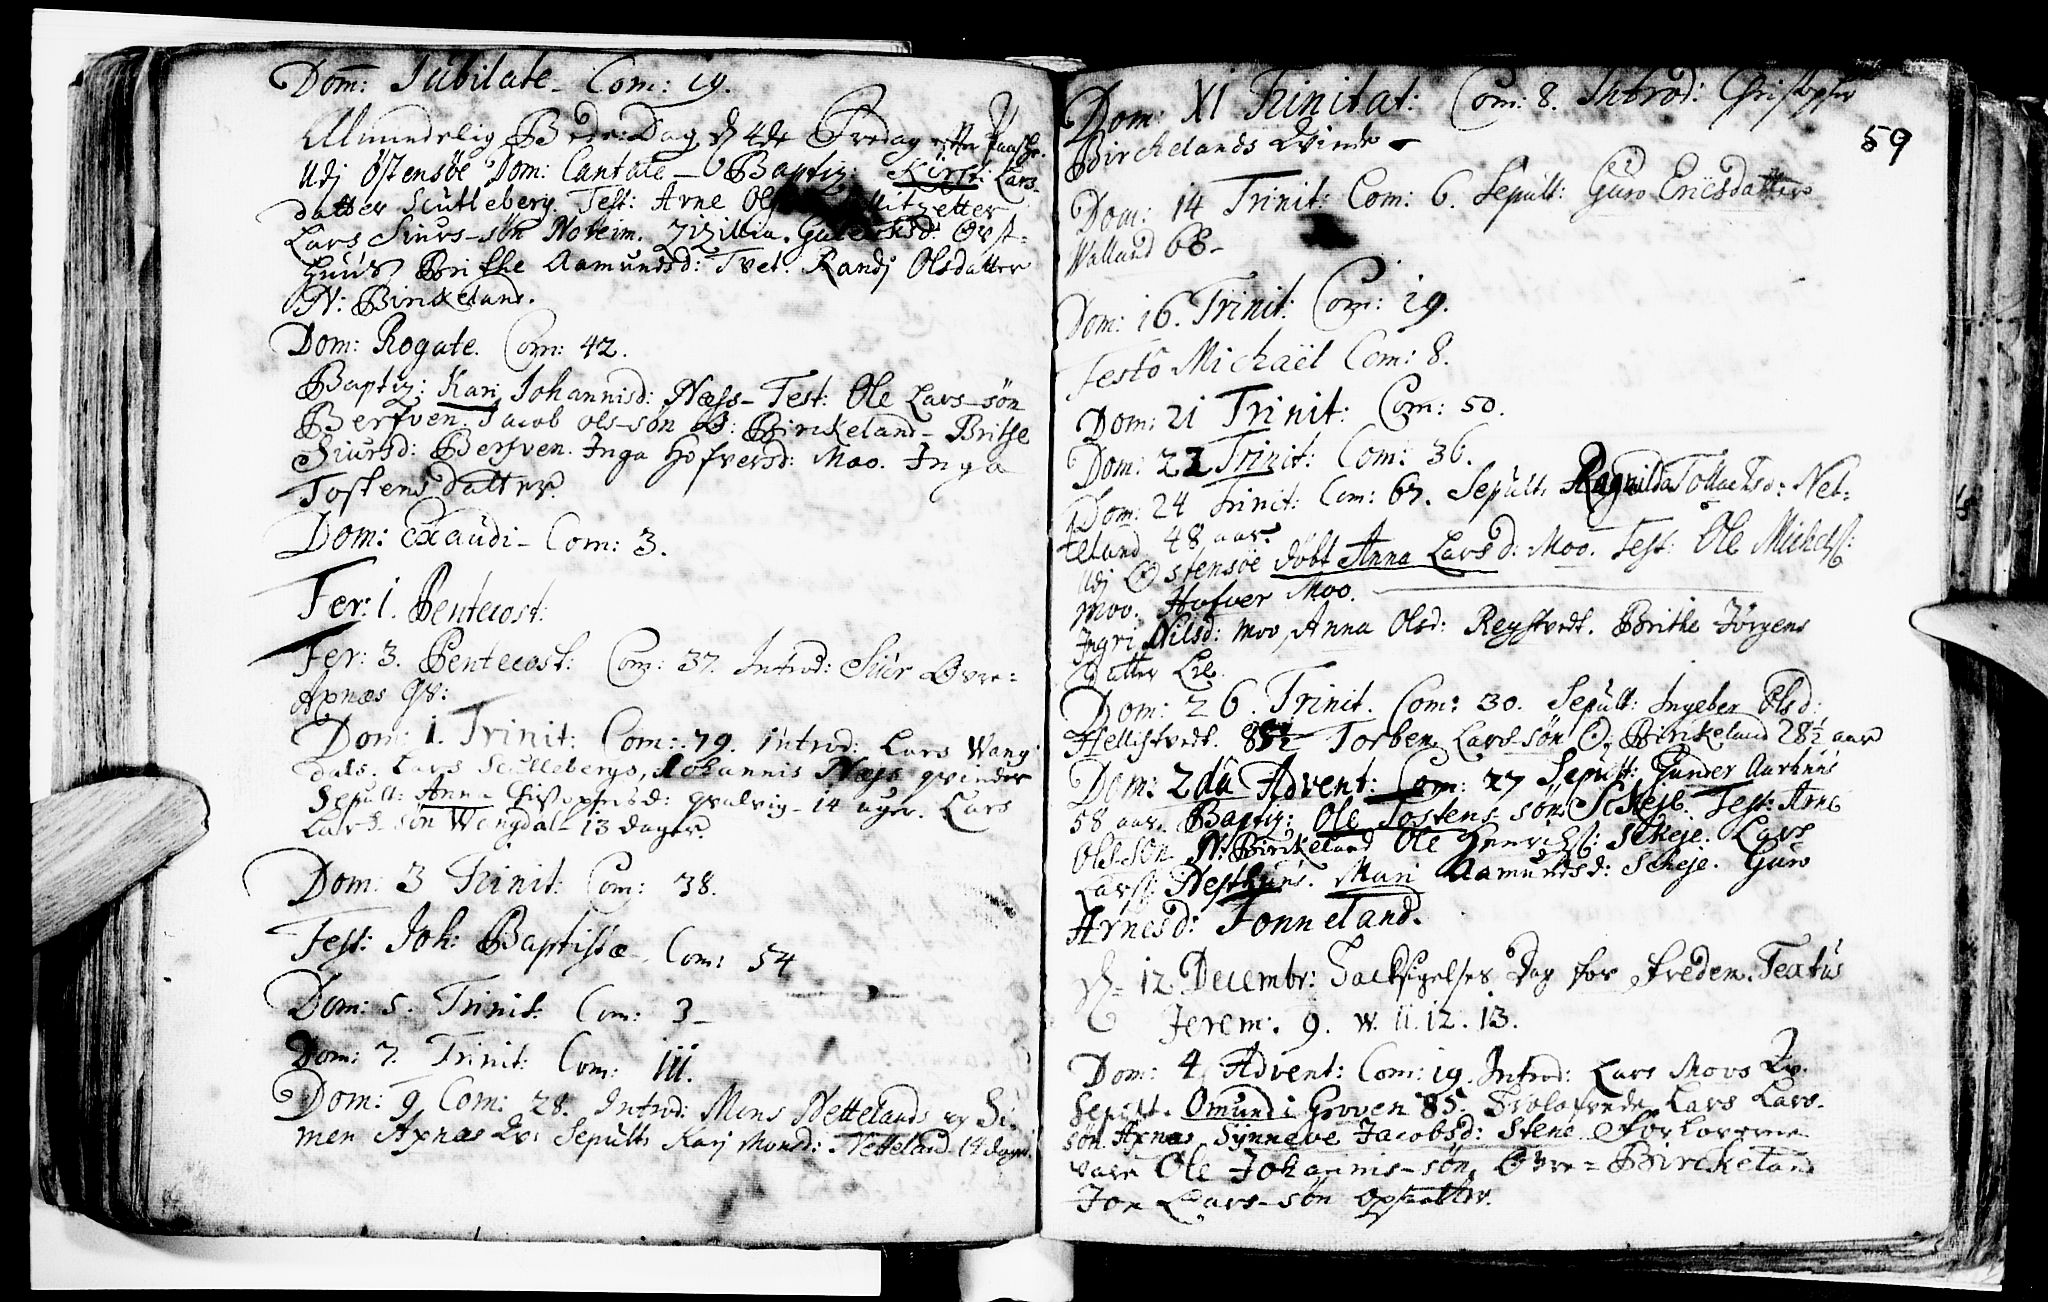 Dom: Iubilate – Com: 19.
Almindelig Bede-Dag, d 4de Fredag efter Paasche.
Udj Östensöe Dom: Cantate – Baptiz: Kirst: Lars-
datter Scutleberg. Test: Arne Ols
Lars Siurs-søn Noreim. Zizillia. Øvst-
huus Brithe Aamundsd: Tvet. Randj Olsdatter
N: Birkeland.
Dom: Rogate. Com: 42.
Baptiz: Kari Johannisd: Næss – Test: Ole Lars-søn
Berfven. Jacob Ols-søn Ø: Birkeland – Brithe
Siursd: Berfven. Inga Hofversd: Moo. Inga
Tostens datter.
Dom: Exaudi – Com: 3.
Fer: 1. Pentecost:
Fer: 3. Pentecost: Com: 37. Introd: Siur Øvre-
Axnæs qv:
Dom: 1. Trinit: Com: 79. Introd: Lars Wang
dals. Lars Scutlebergs, Johannis Næss qvinder
Sepult: Anna Christophersd: qvalvig – 14 uger. Lars
Lars-søn Wangdal – 13 dager.
Dom: 3 Trinit: Com: 38.
Fest: Joh: Baptistæ – Com: 54
Dom: 5. Trinit: Com: 3 –
Dom: 7. Trinit: Com: 111.
Dom: 9 Com: 28. Introd: Mons Nettelands og Si-
men Axnæs Qv: Sepult: Karj Monsd: Netteland 14 dager
Dom: XI Trinitat: Com: 8. Introd: Christopher
59
Birchelands Qvinde –
Dom: 14 Trinit: Com: 6. Sepult: Guro Ericsdatter
Walland 68 –
Dom: 16. Trinit: Com: 19.
Festo Michaël Com: 8.
Dom: 21 Trinit: Com: 50.
Dom: 22 Trinit: Com: 36.
Dom: 24 Trinit: Com: 67. Sepult: Ragnilda Tollachsd: Net-
teland 48 aar.
Udj Østensöe döbt Anna Larsd: Moo. Test: Ole Michelss:
Moo. Hofver Moo.
Ingri Nilsd: Moo, Anna Olsd: Reystvedt. Brithe Jörgens
datter Lie.
Dom: 26. Trinit. Com: 30. Sepult: Ingebor Olsd:
Hellistvedt. Torben Lars-søn Ø: Birkeland 28½ aar
Dom: 2da Advent: Com: 27 Sepult: Gunder Aarhuus
58 aar. Baptiz: Ole Tostens-søn Scheje. Test: Arne
Ols-søn N: Birckeland Ole Henrichss: Scheje. Lars
Larss: Nesthuus. Mari Aamundsd: Scheje. Guro
Arnesd: Tonneland.
d 12 Decembr: Tacksigelses Dag for freden. Textus
Jerem: 9. w. 11. 12. 13.
Dom: 4 Advent: Com: 19. Introd: Lars Moos Qv.
Sepult. Omund i Groven 85. Trolofvede Lars Lars-
søn Axnæs, Synneve Jacobsd: Stene. Forloverne
vare Ole Johannis-søn, Øvre-Birckeland
Jon Lars-søn